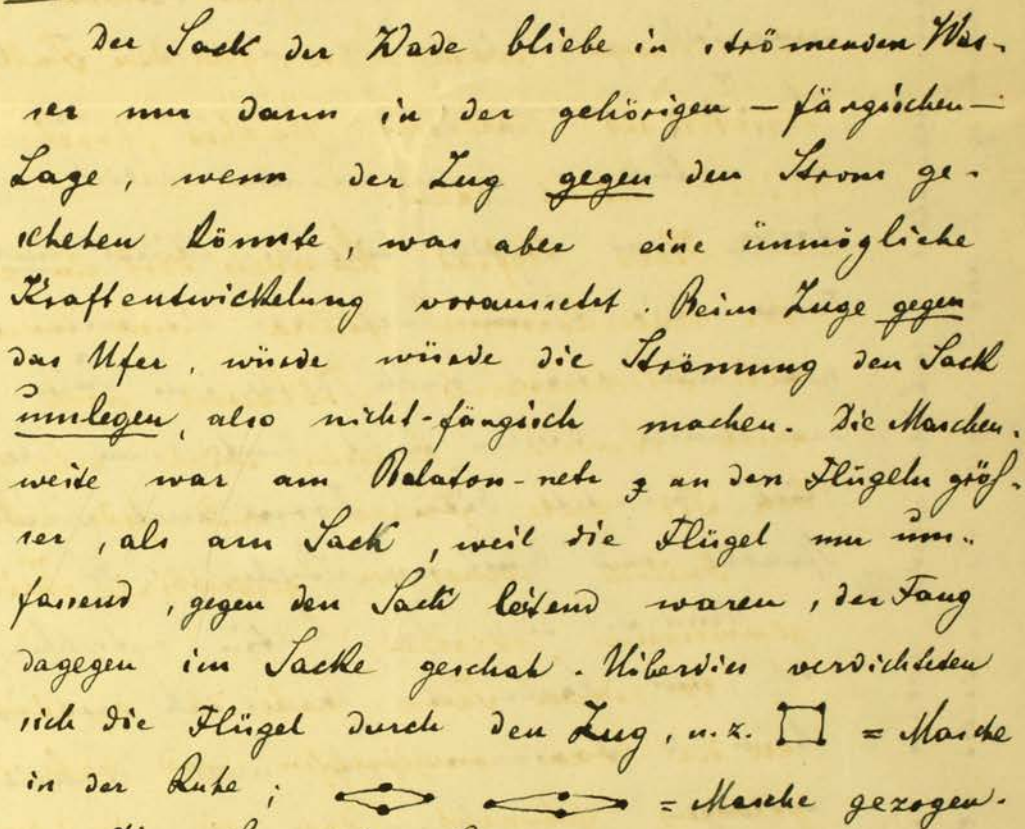 Der Sack der Wade bliebe in strömenden Was-
ser nur dann in der gehörigen — fängischen —
Lage, wenn der Zug gegen den Strom ge-
schehen könnte, was aber eine unmögliche
Kraftentwickelung voraussetzt. Beim Zuge gegen
das Ufer, würde würde die Strömung den Sack
umlegen, also nicht-fängisch machen. Die Maschen-
weite war am Balaton-netz an den Flügeln gröſ-
ser, als am Sack, weil die Flügel nur um-
fassend, gegen den Sack leitend waren, der Fang
dagegen im Sacke geschah. Uiberdies verdichteten
sich die Flügel durch den Zug, u. z. = Masche
in der Ruhe; = Masche gezogen.